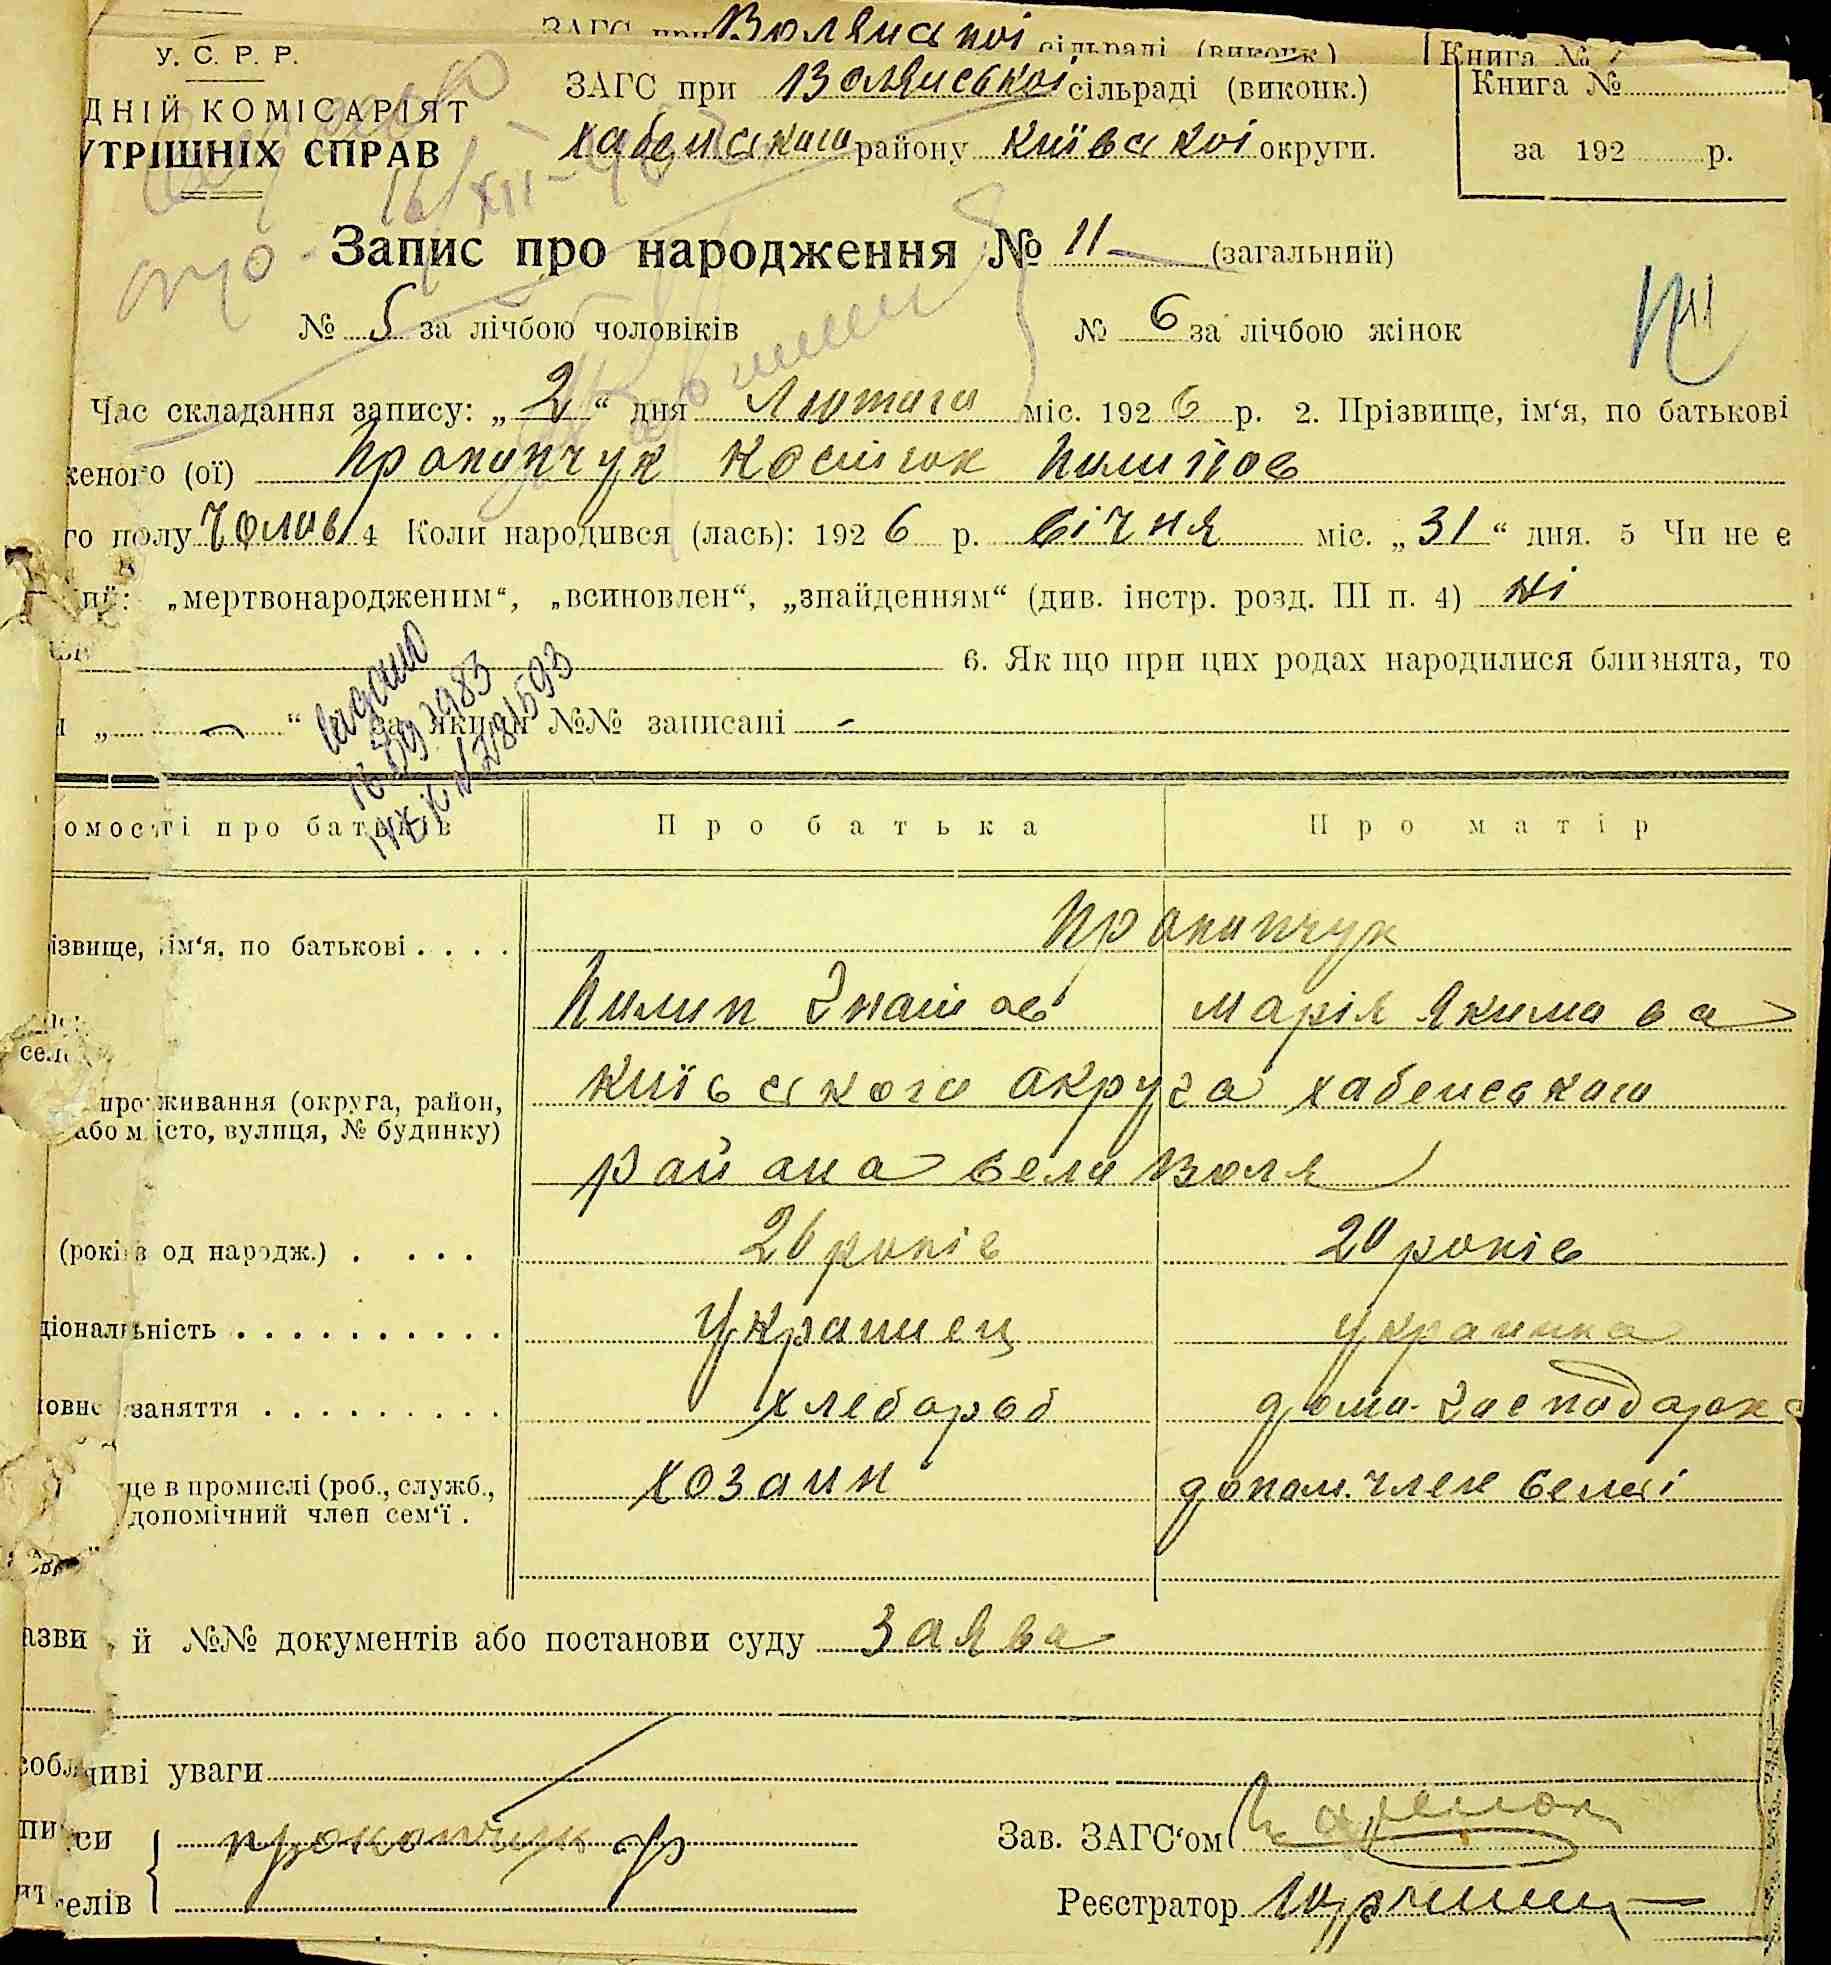 ЗАГС при Волянскої сільраді (виконк.) Книга №
У. С. Р. Р.
ЗАГС при Волянської сільраді (виконк.) Книга №
ДНІЙ КОМІСАРІЯТ
Хабенського району Київскої округи. за 192 р.
УТРІШНІХ СПРАВ
16/XII-46
Запис про народження № 11 (загальний)
№ 5 за лічбою чоловіків № 6 за лічбою жінок
№ 11
Час складання запису: „ 2 “ дня Лютого міс. 1926 р. 2. Прізвище, ім‘я, по батькові
женого (ої) Прокопчук Костюк Пилипов
го полу Чолов. 4 Коли народився (лась): 1926 р. січня міс. „ 31 “ дня. 5 Чи не є
„мертвонародженим“, „всиновлен“, „знайденням“ (див. інстр. розд. III п. 4) ні
6. Якщо при цих родах народилися близнята, то
„ - “ за якими №№ записані -
видано
омості про батьків Про батька Про матір
ізвище, ім‘я, по батькові . . . . Прокопчук
Пилип Гнатов Марія Якимова
проживання (округа, район, Київского округа Хабенського
або місто, вулиця, № будинку)
района села Воля
(років од народж.) . . . . 26 років 20 років
ціональність . . . . . . . . . . Украинец украинка
овне заняття . . . . . . . . . хлебороб домо-господарка
ще в промислі (роб., служб., хозаин допом. член семьі
допомічний член сем‘ї .
азви й №№ документів або постанови суду Заява
собливі уваги
писи Прокопчук Ф Зав. ЗАГС‘ом
телів Реєстратор